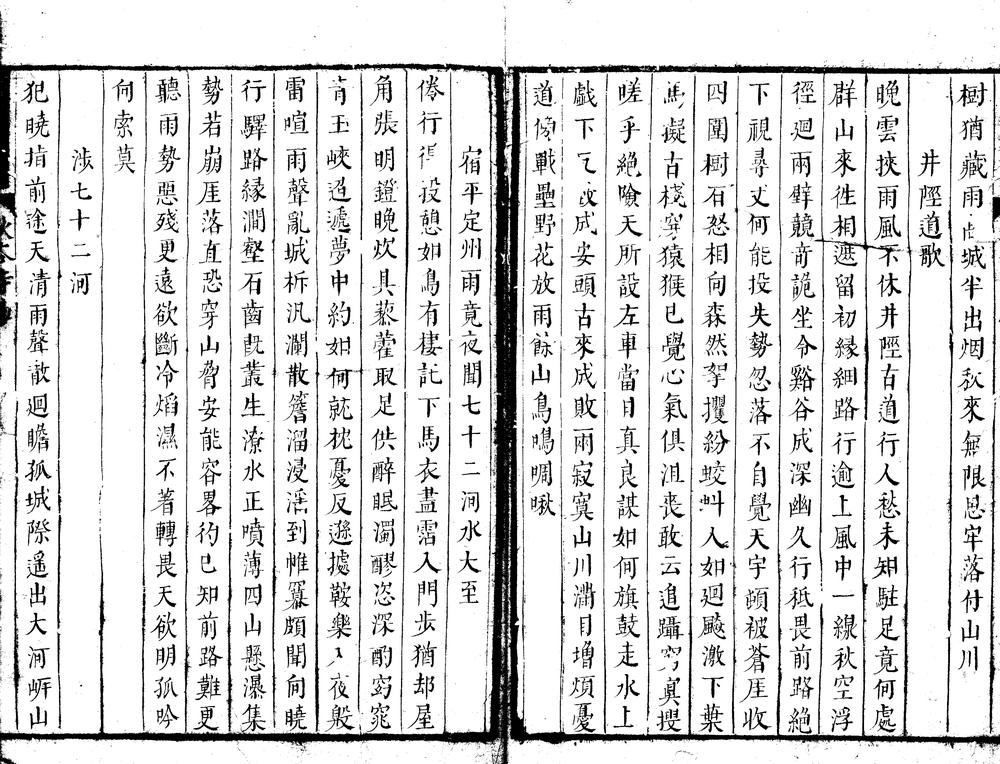 樹猶藏雨城半出烟秋來無限思牢落付山川
井陘道歌
晚雲挾雨風不休井陘古道行人愁未知駐足竟何處
群山來徃相遮留初緣細路行逾上風中一線秋空浮
徑迴兩壁競竒詭坐令谿谷成深幽久行秪畏前路絕
下視尋丈何能投失勢忽落不自覺天宇頓被蒼厓收
四圍樹石怒相向森然拏攫紛蛟虯人如迴飇激下葉
馬擬古棧穿猿猴已覺心氣俱沮喪敢云追躡窮冥搜
嗟乎絕險天所設左車當日真良謀如何旗鼓走水上
戲下乞成安頭古來成敗兩寂寞山川滿目增煩憂
道傍戰壘野花放雨餘山鳥鳴啁啾
宿平定州雨竟夜聞七十二河水大至
倦行得投憩如鳥有棲託下馬衣盡霑入門步猶却屋
角張明鐙晚炊具藜藿取足供醉眠濁醪恣深酌窈窕
青玉峽迢遞夢中約如何就枕憂反遜據鞍樂入夜殷
雷喧雨聲亂城柝汎瀾散簷溜浸淫到帷幕頗聞向曉
行驛路緣澗壑石齒旣叢生潦水正噴薄四山懸瀑集
勢若崩厓落直恐穿山脅安能容畧彴已知前路難更
聽雨勢惡殘更遠欲斷冷熖濕不著轉畏天欲明孤吟
何索莫
涉七十二河
犯曉指前途天清雨聲散迴瞻孤城際遙出大河岍山